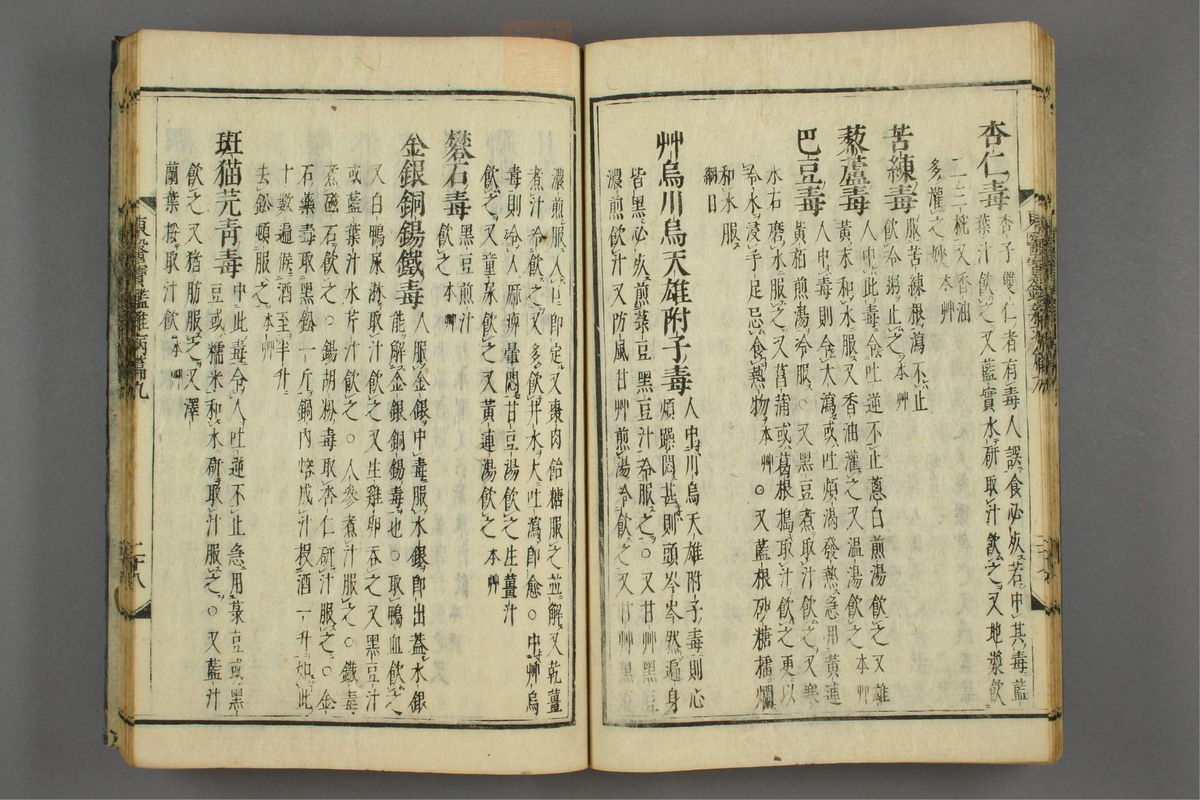 杏仁毒 杏子雙仁者有毒人誤食必死若中其毒藍
葉汁飲之又藍實水硏取汁飮之又地漿飮
二三椀又香油
多灌之妙本艸
苦練毒 服苦練根瀉不止
飮冷粥止之本艸
藜蘆毒 人中此毒令吐逆不止葱白煎湯飮之又雄
黃末和水服又香油灌之又温湯飮之本艸
巴豆毒 人中毒則令大瀉或吐煩渴發熱急用黃連
黃栢煎湯冷服○又黑豆煮取汁飮之又寒
水石磨水服之又菖蒲或葛根搗取汁飮之更以
冷水浸手足忌食熱物本艸○又藍根砂糖擂爛
和水服
綱目
艸烏川烏天雄附子毒 人中川烏天雄附子毒則心
煩躁悶甚則頭岑岑然遍身
皆黑必死煎菉豆黑豆汁冷服之○又甘艸黑豆
濃煎飮汁又防風甘艸煎湯冷飮之又甘艸黑豆
濃煎服入口卽定又棗肉飴糖服之並解又乾薑
煮汁冷飮之又多飮井水大吐瀉卽愈○中艸烏
毒則令人麻痺暈悶甘豆湯飮之生薑汁
飮之又童尿飮之又黃連湯飮之本艸
礬石毒 黑豆煎汁
飮之本艸
金銀銅錫鐵毒 人服金銀中毒服水銀卽出蓋水銀
能解金銀銅錫毒也○取鴨血飮之
又白鴨屎淋取汁飮之又生雞卵吞之又黑豆汁
或藍葉汁水芹汁飮之○人參煮汁服之○鐵毒
煮磁石飮之○錫胡粉毒取杏仁硏汁服之○金
石藥毒取黑鈆一斤鍋內熔成汁投酒一升如此
十數遍候酒至半升
去鈆頓服之本艸
斑猫芫靑毒 中此毒令人吐逆不止急用菉豆或黑
豆或糯米和水硏取汁服之○又藍汁
飮之又猪肪服之又澤
蘭葉挼取汁飮本艸
東醫寶鑑雜病篇九
二十八